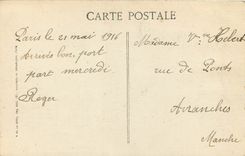 CARTE POSTALE
Paris le 21 mai 1916
Arrivés bon port
part mercredi
Roger
Madame Vve Hébert
rue de Ponts
Avranches
Manche